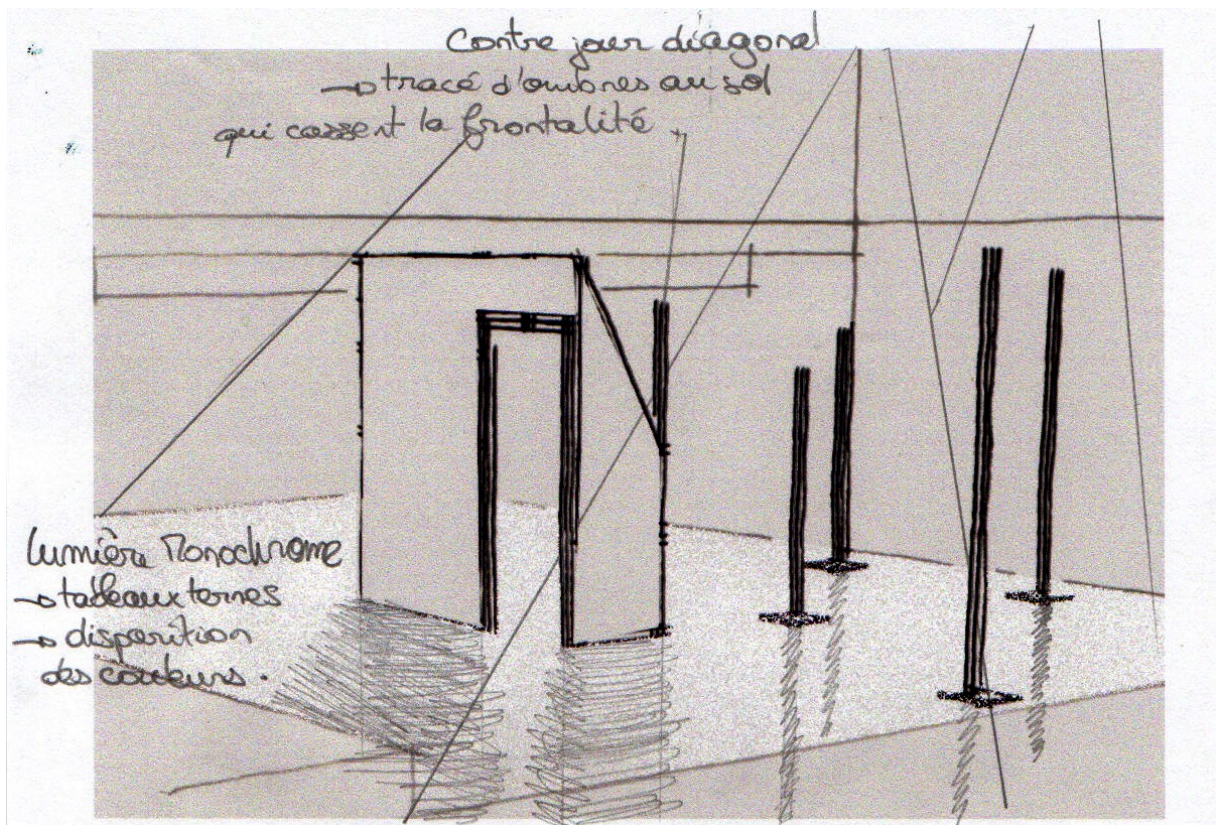 Contre jour diagonal
→ tracé d'ombres au sol
qui cassent la frontalité.
Lumière Monochrome
→ tableaux ternes
→ disparition
des couleurs.